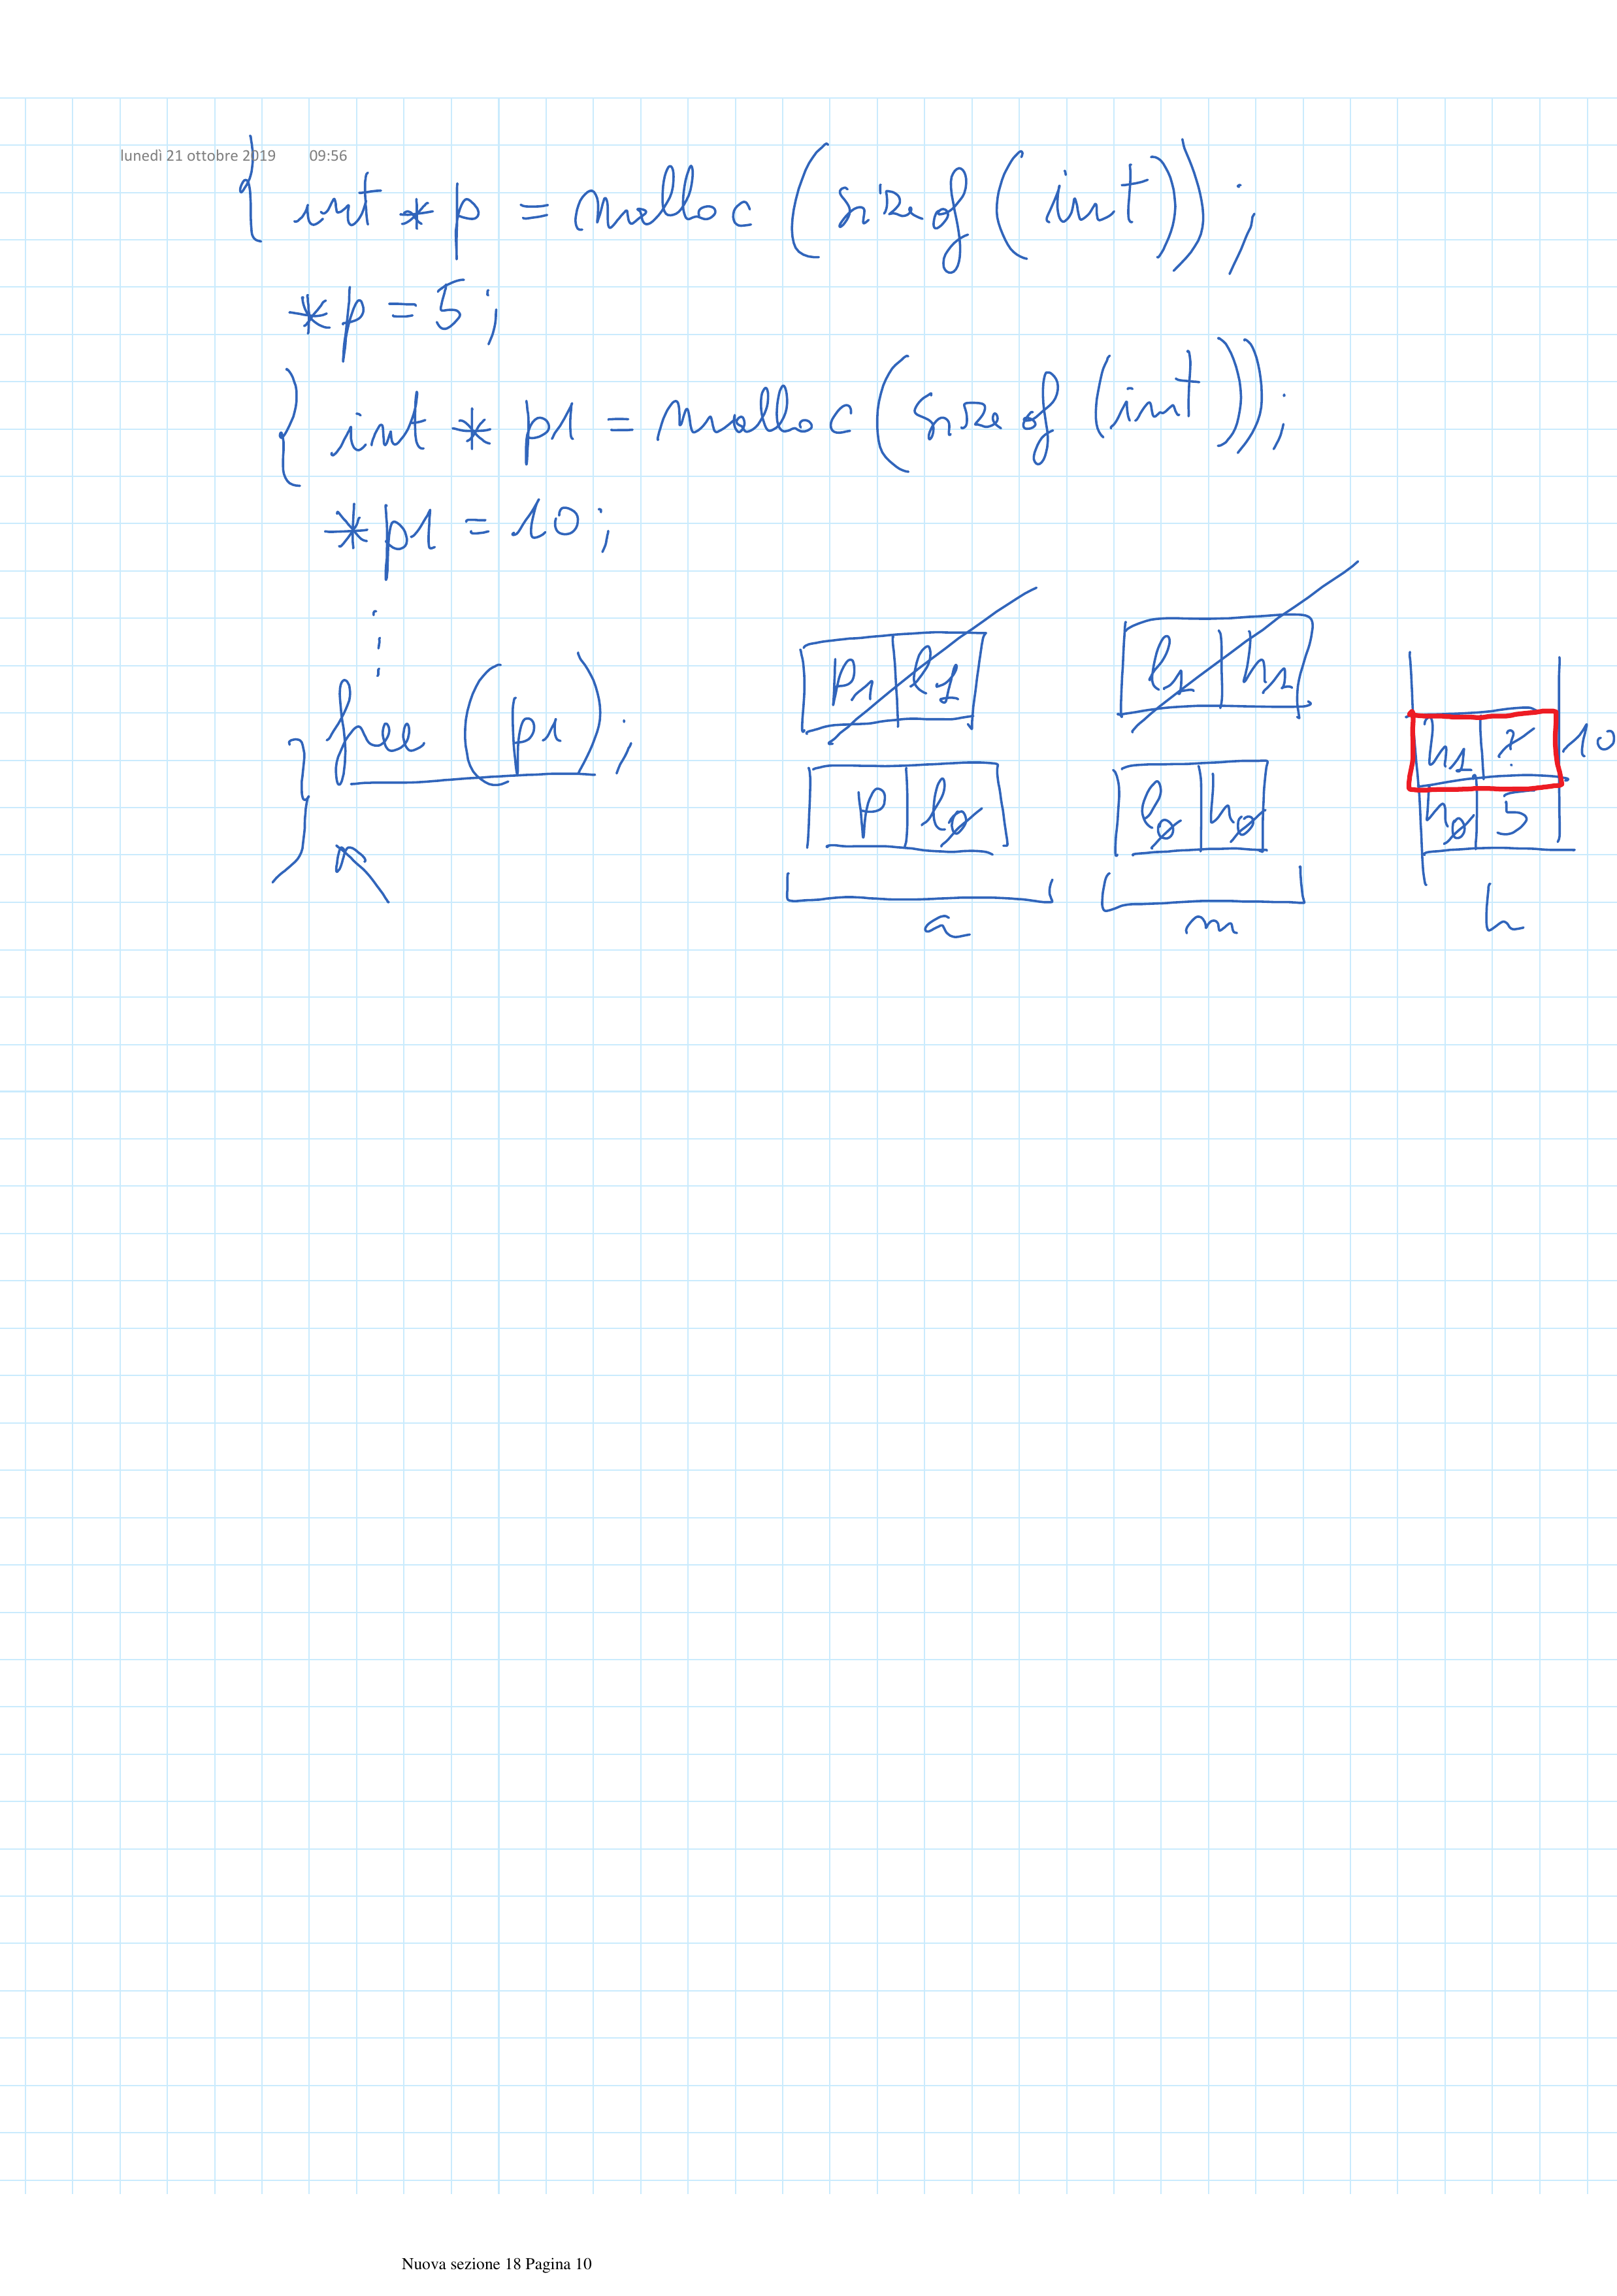 lunedì 21 ottobre 2019 09:56
{ int * p = malloc (sizeof (int));
*p = 5;
{ int * p1 = malloc (sizeof (int));
*p1 = 10;
⋮
free (p1);
}
}
p1 l1
l1 h1
h1 ? 10
p l0
l0 h0
h0 5
a
m
h
Nuova sezione 18 Pagina 10